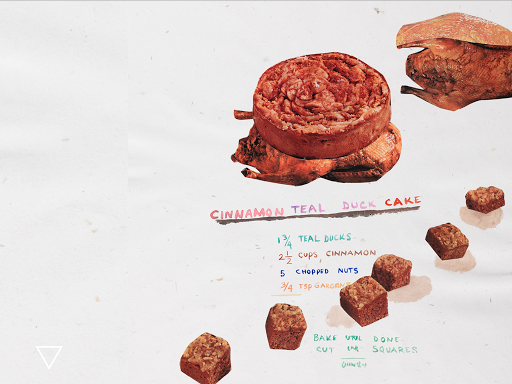 CINNAMON TEAL DUCK CAKE
1 3/4 TEAL DUCKS
2 1/2 CUPS CINNAMON
5 CHOPPED NUTS
3/4 TSP
BAKE UNTIL DONE
CUT INTO SQUARES